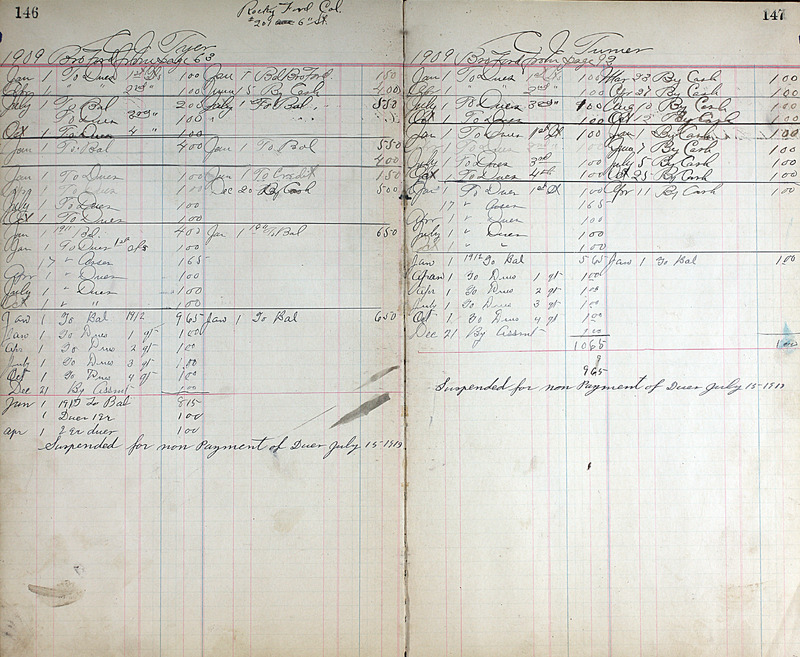 146
Rocky Ford Col.
6" St.
C J Tyer
1909 Bro Ford from page 63
Jan 1 To Dues 1st Qr. 1 00 Jan 1 Bal Bro Ford 1 50
Apr 1 " " 2nd " 1 00 June 5 By Cash 4 00
July 1 To Bal 2 00 July 1 To Bal 5 50
To Dues 3rd " 1 00
Oct 1 To Dues 4 " 1 00
Jan 1 To Bal 4 00 Jan 1 To Bal 5 50
4 00
Jan 1 To Dues 1 00 Jan 1 To Credit 1 50
Apr 1 To Dues 1 00 Dec 20 By Cash 5 00
July 1 To Dues 1 00
Oct 1 To Dues 1 00
Jan 1 1911 Bal 4 00 Jan 1 1911 To Bal 6 50
Jan 1 To Dues 1st 1 00
17 " 1 65
Apr 1 " Dues 1 00
July 1 " Dues 1 00
Oct 1 " " 1 00
Jan 1 To Bal 1912 9 65 Jan 1 To Bal 6 50
Jan 1 To Dues 1 qr 1 00
Apr 1 To Dues 2 qr 1 00
July 1 To Dues 3 qr 1 00
Oct 1 To Dues 4 qr 1 00
Dec 21 By Assmt 1 00
Jan 1 1913 To Bal 8 15
1 Dues 1 qr 1 00
Apr 1 2 qr dues 1 00
Suspended for non Payment of Dues July 15-1913
147
C J Turner
1909 Bro Ford from page 93
Jan 1 To Dues 1st Qr 1 00 Mar 23 By Cash 1 00
Apr 1 " " 2nd " 1 00 Apr 27 By Cash 1 00
July 1 To Dues 3rd " 1 00 Aug 10 By Cash 1 00
Oct 1 To Dues 1 00 Oct 12 By Cash 1 00
Jan 1 To Dues 1st Qr 1 00 Jan 1 By Cash 1 00
1 00 June 7 By Cash 1 00
July 1 To Dues 3rd 1 00 July 5 By Cash 1 00
Oct 1 To Dues 4th 1 00 Oct 25 By Cash 1 00
Jan 1 To Dues 1st Qr 1 00 Apr 11 By Cash 1 00
17 " 1 65
Apr 1 " Dues 1 00
July 1 " Dues 1 00
1 " " 1 00
Jan 1 1912 To Bal 5 65 Jan 1 To Bal 1 00
1 To Dues 1 qr 1 00
Apr 1 To Dues 2 qr 1 00
July 1 To Dues 3 qr 1 00
Oct 1 To Dues 4 qr 1 00
Dec 21 By Assmt 1 00
10 65 1 00
9 65
Suspended for non Payment of Dues July 15-1913